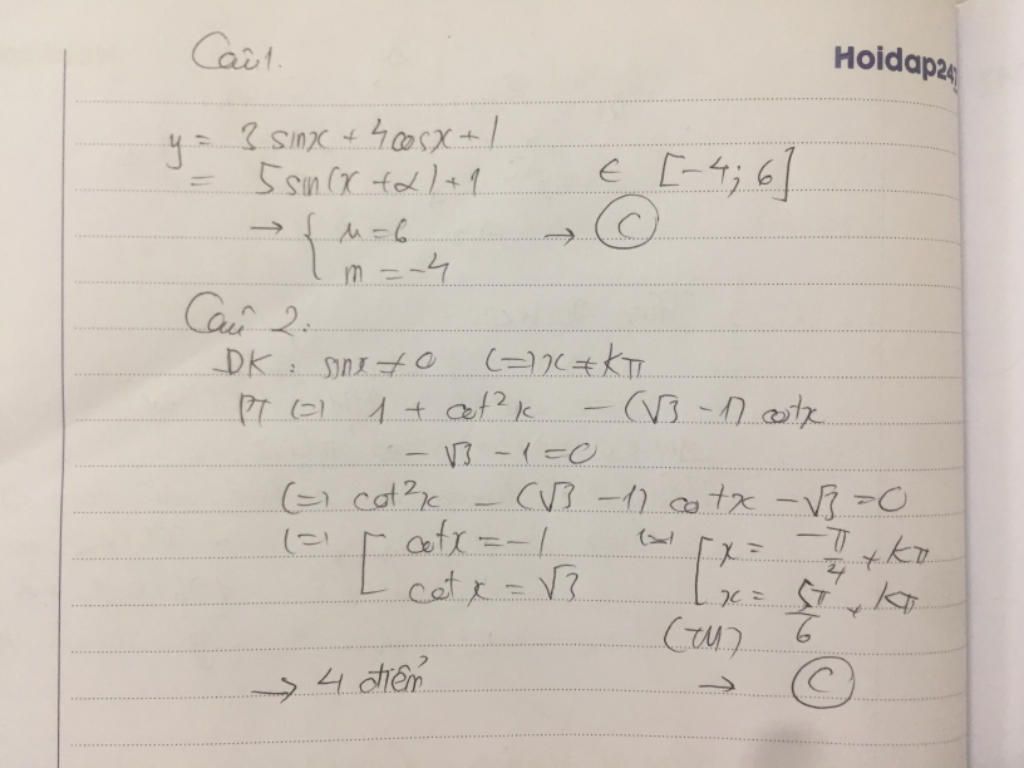 Câu 1.
Hoidap247
y = 3 sinx + 4 cosx + 1
= 5 sin(x + α) + 1 ∈ [-4; 6]
→ { M = 6 → C
m = -4
Câu 2:
DK : sinx ≠ 0 (=) x ≠ kπ
PT (=) 1 + cot²x - (√3 - 1) cotx
- √3 - 1 = 0
(=) cot²x - (√3 - 1) cotx - √3 = 0
(=) [ cotx = -1 (=) [ x = -π/4 + kπ
cotx = √3 x = 5π/6 + kπ
(TM)
→ 4 điểm → C